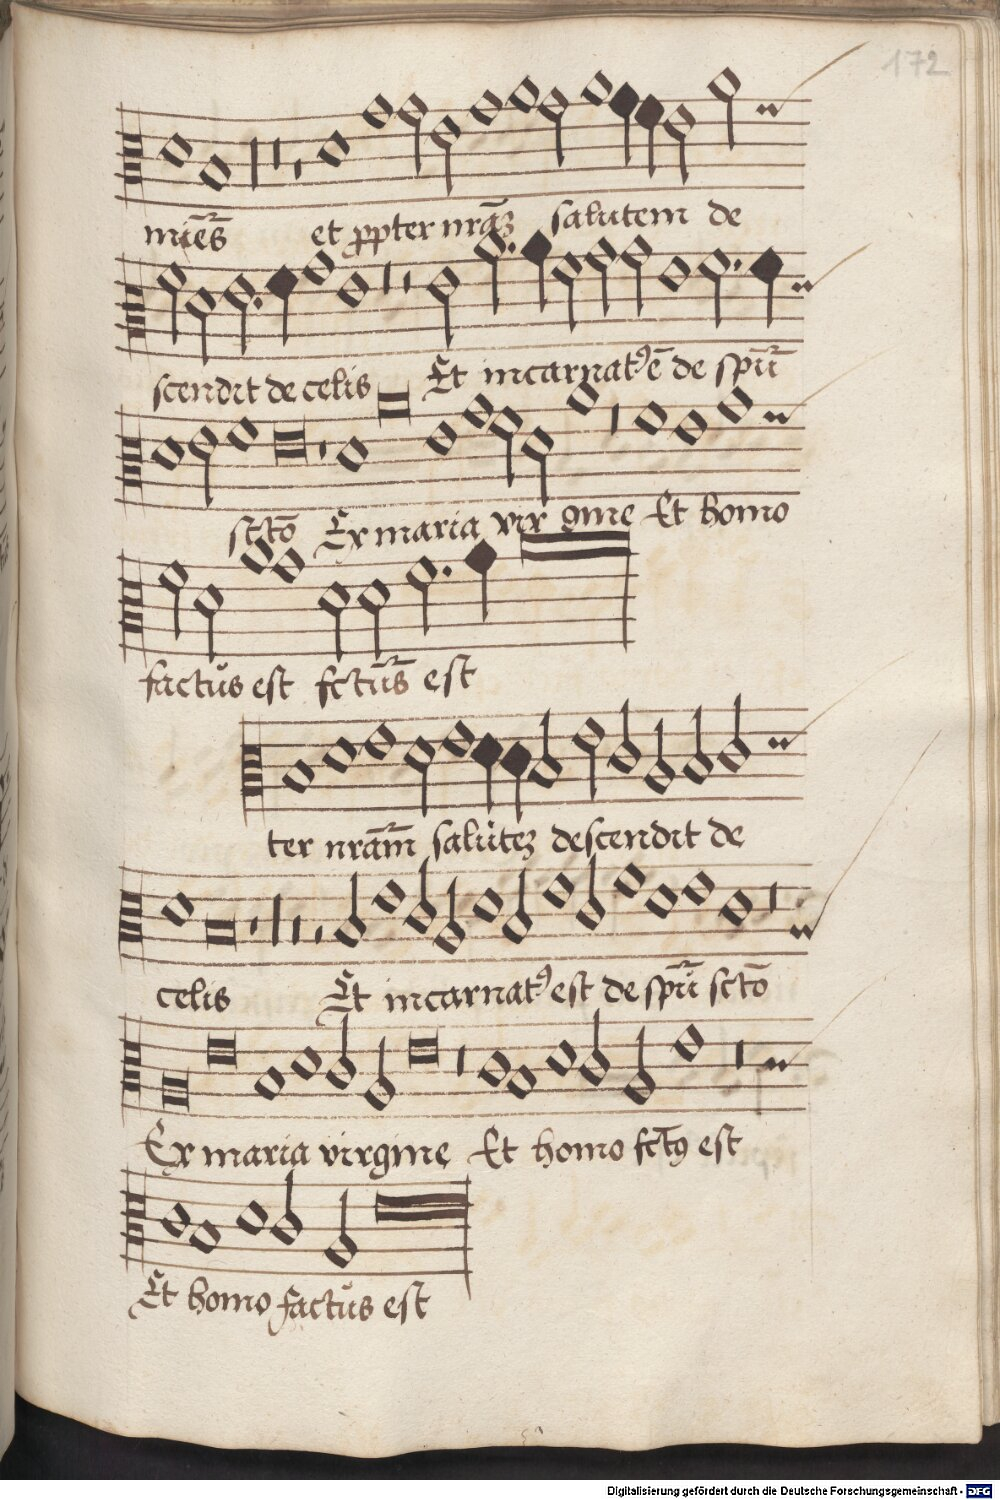 172
mīēs et ꝓpter nrāꝫ salutem de
scendit de celis Et incarnatꝰ ē de spū
sctō Ex maria vir gine Et homo
factŭs est fctŭs est
ter nrām salŭteꝫ descendit de
celis Et incarnatꝰ est de spū sctō
Ex maria virgine Et homo fctꝰ est
Et homo factŭs est
Digitalisierung gefördert durch die Deutsche Forschungsgemeinschaft - DFG